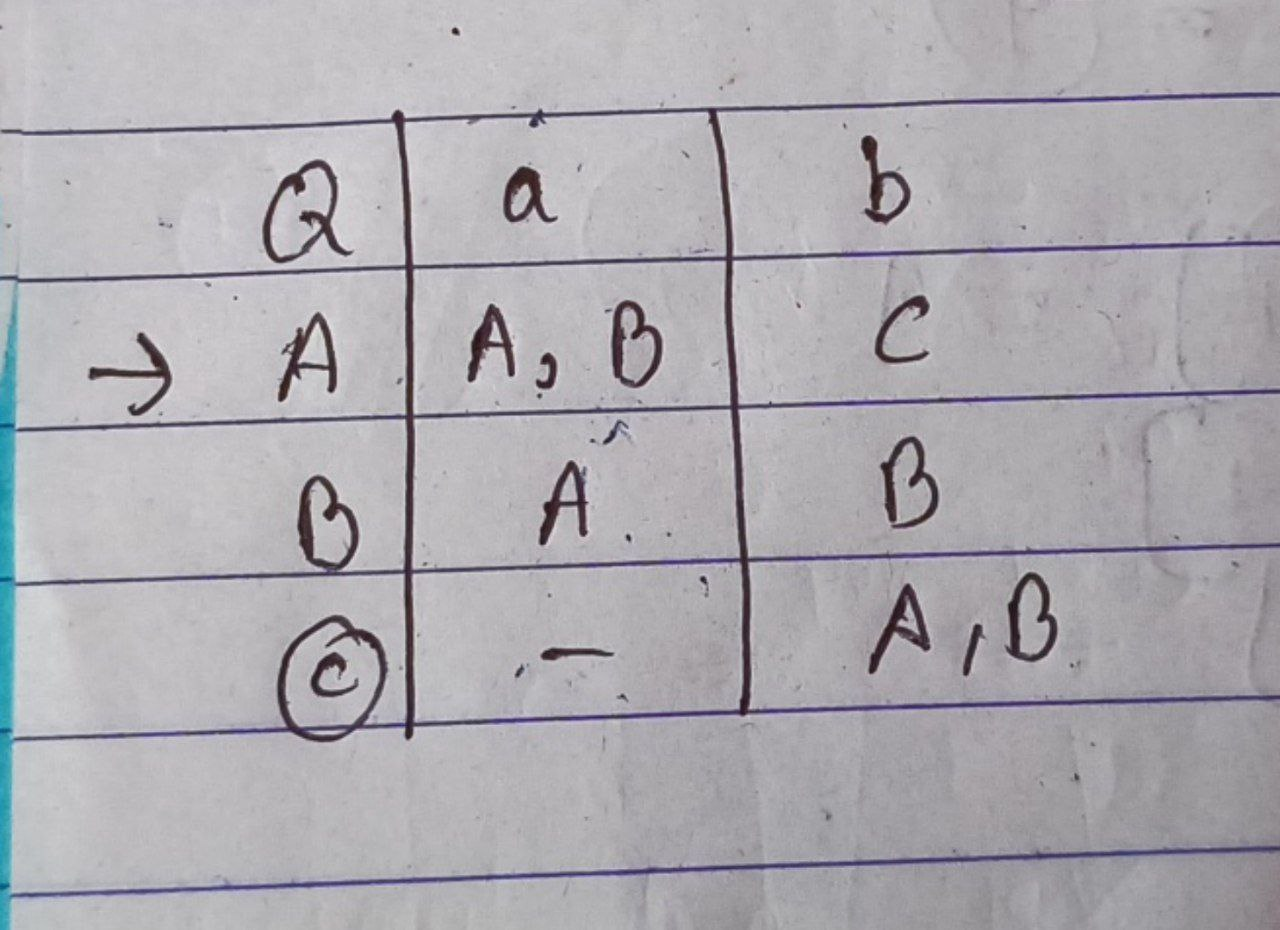 Q a b
→ A A, B C
B A B
C - A, B